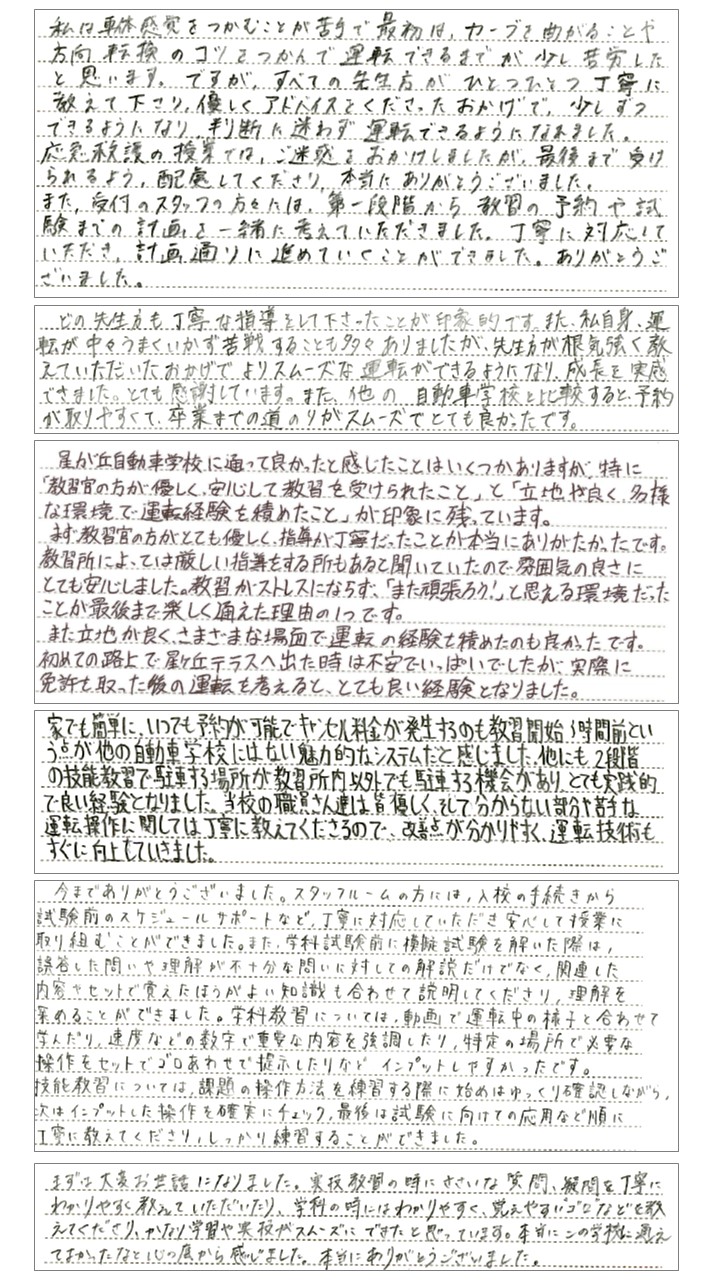 私は車体感覚をつかむことが苦手で最初は、カーブを曲がることや
方向転換のコツをつかんで運転できるまでが少し苦労した
と思います。ですが、すべての先生方がひとつひとつ丁寧に
教えて下さり、優しくアドバイスをくださったおかげで、少しずつ
できるようになり、判断に迷わず運転できるようになれました。
応急救護の授業では、ご迷惑をおかけしましたが、最後まで受け
られるよう、配慮してくださり、本当にありがとうございました。
また、受付のスタッフの方々には、第一段階から教習の予約や試
験までの計画を一緒に考えていただきました。丁寧に対応して
いただき、計画通りに進めていくことができました。ありがとうご
ざいました。
どの先生方も丁寧な指導をして下さったことが印象的です。また、私自身、運
転が中々うまくいかず苦戦することも多々ありましたが、先生方が根気強く教
えていただいたおかげでよりスムーズな運転ができるようになり、成長を実感
できました。とても感謝しています。また、他の自動車学校と比較すると、予約
が取りやすくて、卒業までの道のりがスムーズでとても良かったです。
星が丘自動車学校に通って良かったと感じたことはいくつかありますが、特に
「教習官の方が優しく、安心して教習を受けられたこと」と「立地が良く、多様
な環境で運転経験を積めたこと」が印象に残っています。
まず教習官の方がとても優しく、指導が丁寧だったことが本当にありがたかったです。
教習所によっては厳しい指導をする所もあると聞いていたので雰囲気の良さに
とても安心しました。教習がストレスにならず、「また頑張ろう!」と思える環境だった
ことが最後まで楽しく通えた理由の1つです。
また立地が良く、さまざまな場面で運転の経験を積めたのも良かったです。
初めての路上で星ヶ丘テラスへ出た時は不安でいっぱいでしたが、実際に
免許を取った後の運転を考えると、とても良い経験となりました。
家でも簡単に、いつでも予約が可能でキャンセル料金が発生するのも教習開始3時間前とい
う点が他の自動車学校にはない魅力的なシステムだと感じました。他にも2段階
の技能教習で駐車する場所が教習所内以外でも駐車する機会があり、とても実践的
で良い経験となりました。当校の職員さん達は皆優しく、そして分からない部分や苦手な
運転操作に関しては丁寧に教えてくださるので、改善点が分かりやすく、運転技術も
すぐに向上していきました。
今までありがとうございました。スタッフルームの方には、入校の手続きから
試験前のスケジュールサポートなど、丁寧に対応していただき安心して授業に
取り組むことができました。また、学科試験前に模擬試験を解いた際は、
誤答した問いや理解が不十分な問いに対しての解説だけでなく、関連した
内容やセットで覚えたほうがよい知識も合わせて説明してくださり、理解を
深めることができました。学科教習については、動画で運転中の様子と合わせて
学んだり、速度などの数字で重要な内容を強調したり、特定の場所で必要な
操作をセットでゴロあわせで提示したりなどインプットしやすかったです。
技能教習については、課題の操作方法を練習する際に始めはゆっくり確認しながら、
次はインプットした操作を確実にチェック、最後は試験に向けての応用など順に
丁寧に教えてくださり、しっかり練習することができました。
まずは大変お世話になりました。実技教習の時にささいな質問、疑問を丁寧に
わかりやすく教えていただいたり、学科の時にはわかりやすく、覚えやすい"ゴロ"などを教
えてくださり、かなり学習や実技がスムーズにできたと思っています。本当にこの学校に通え
てよかったなと心の底から感じました。本当にありがとうございました。